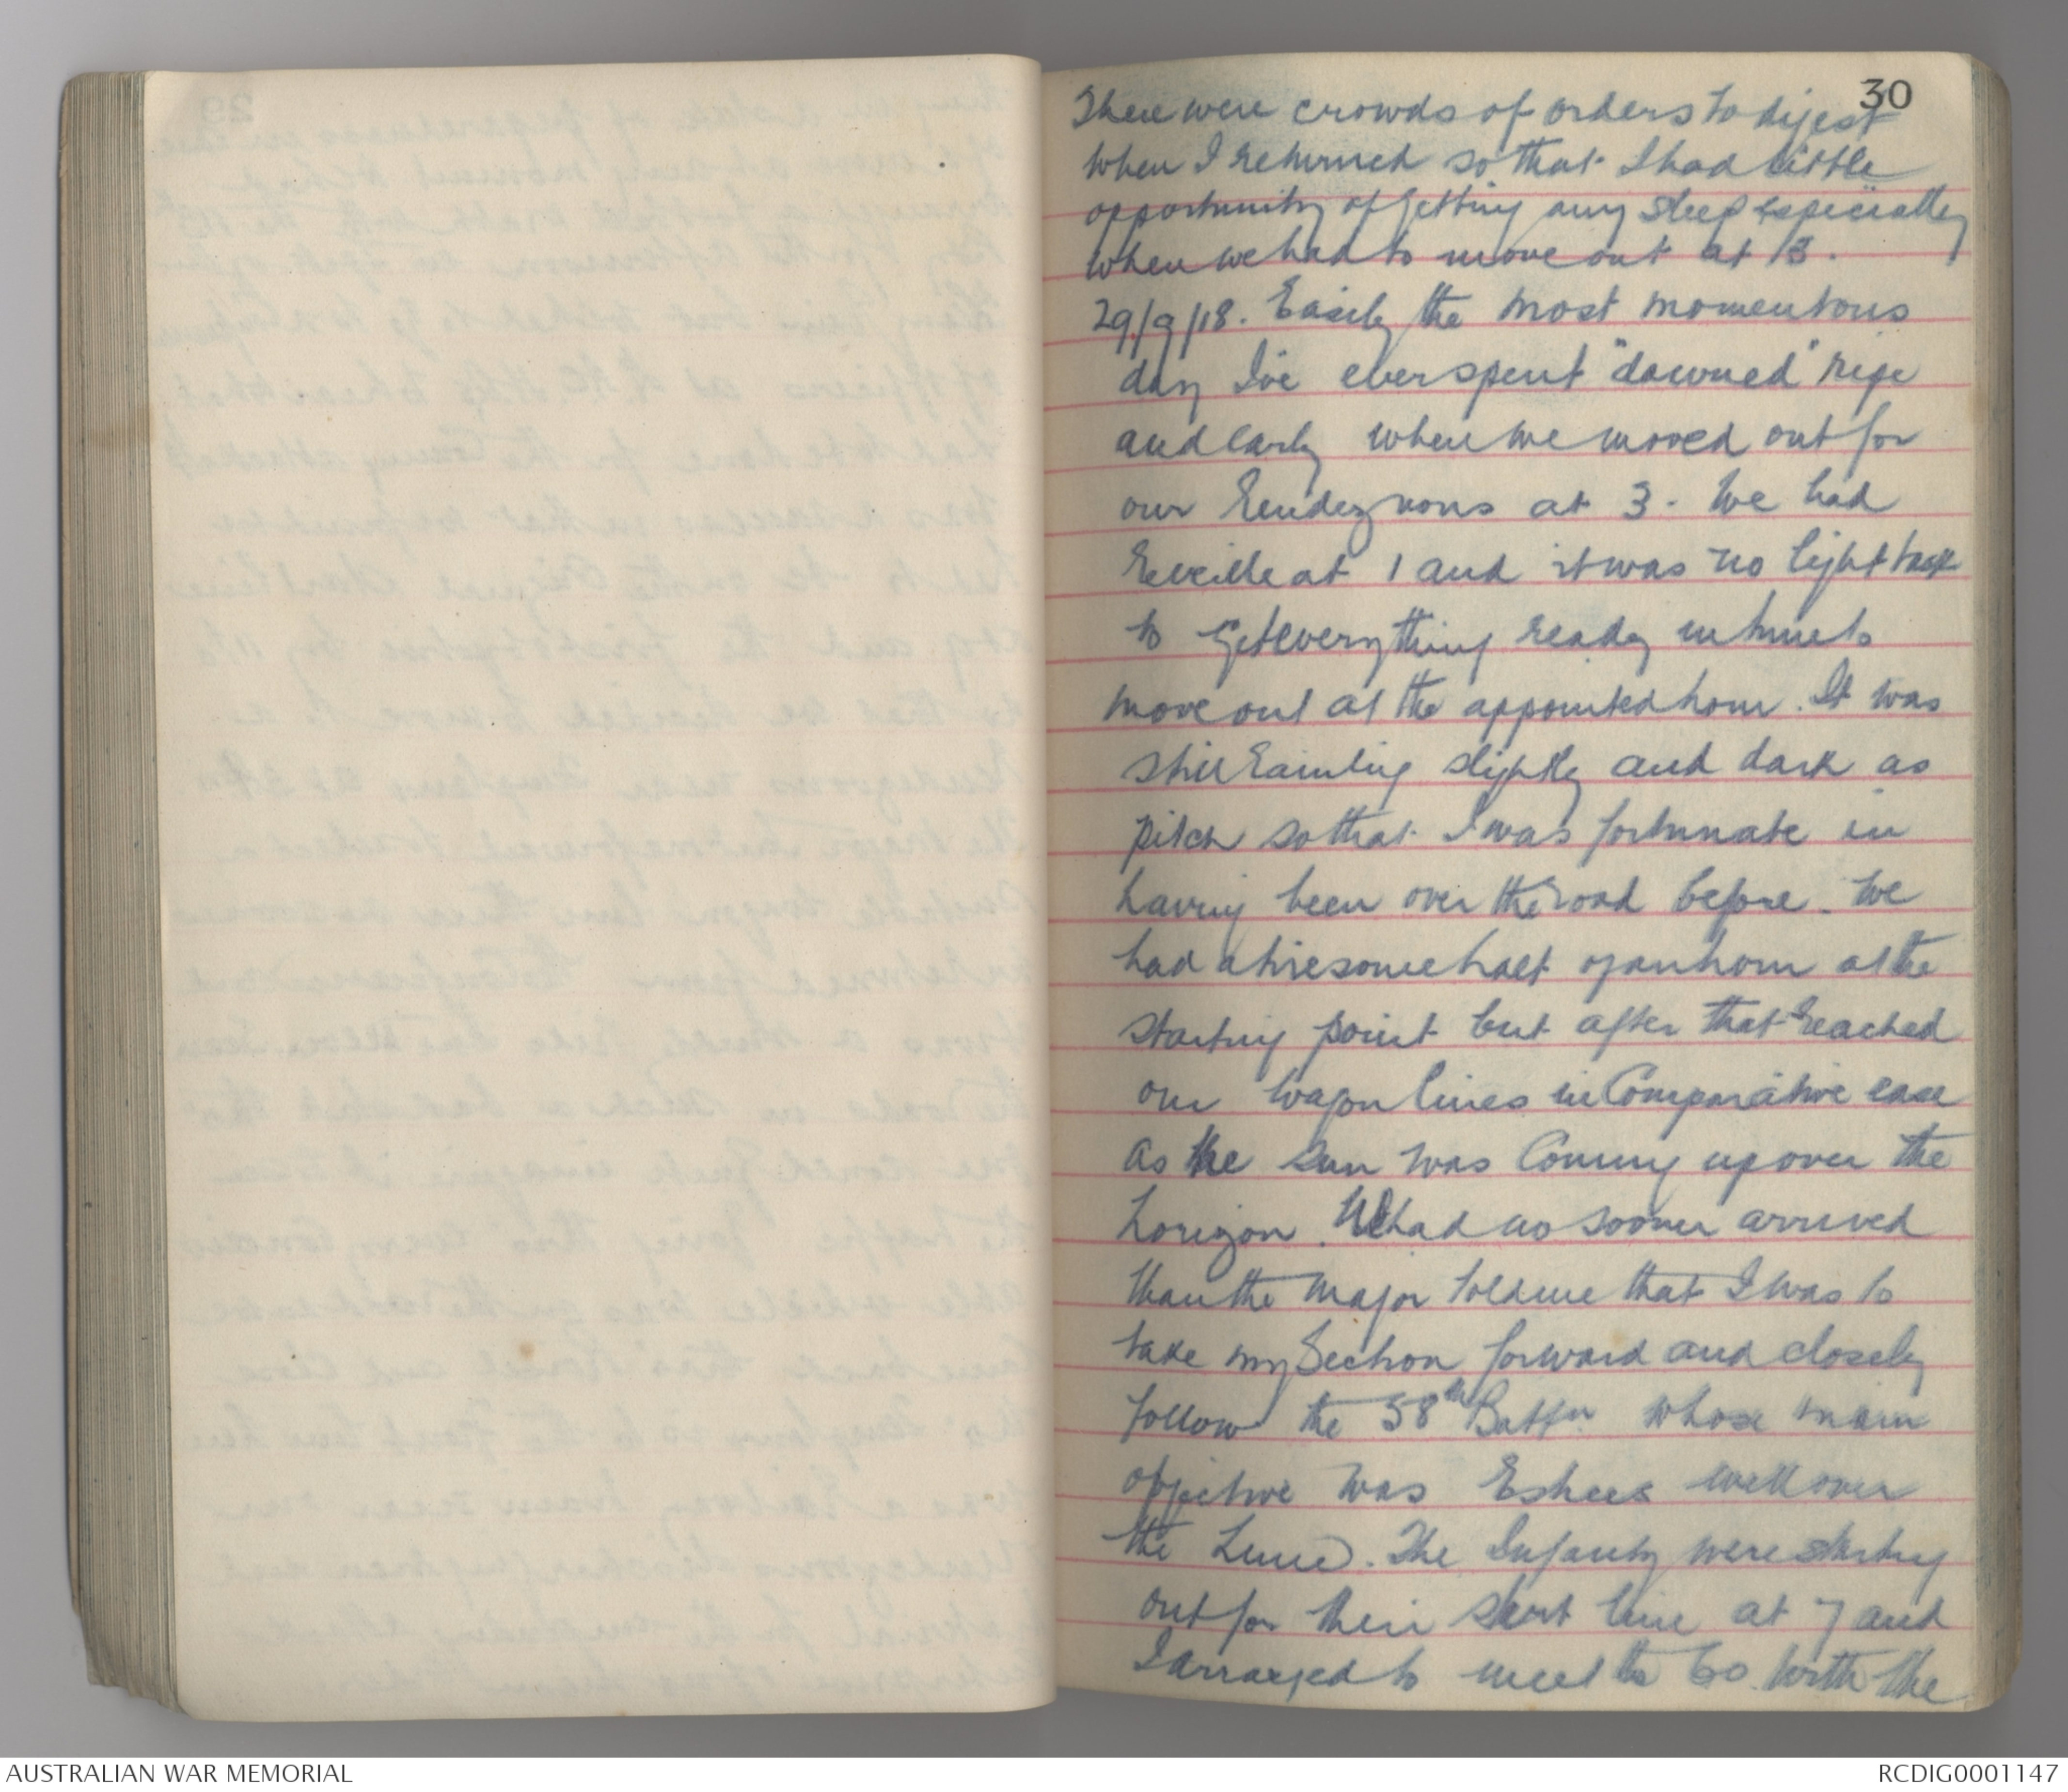 30
There were crowds of orders to digest
when I returned so that I had little
opportunity of getting any sleep especially
when we had to move out at 3.
29/9/18. Easily the most momentous
day I've ever spent "dawned" ripe
and early when we moved out for
our Rendezvous at 3. We had
Reveille at 1 and it was no light task
to get everything ready in time to
move out at the appointed hour. It was
still raining slightly and dark as
pitch so that I was fortunate in
having been over the road before. We
had a tiresome halt of an hour at the
starting point but after that reached
our wagon lines in Comparative ease
as the sun was Coming up over the
horizon. We had no sooner arrived
than the Major told me that I was to
take my Section forward and closely
follow the 58th Battn whose main
objective was Estrees well over
the Line. The Infantry were starting
out for their start line at 7 and
I arranged to meet the Co. With the
AUSTRALIAN WAR MEMORIAL
RCDIG0001147